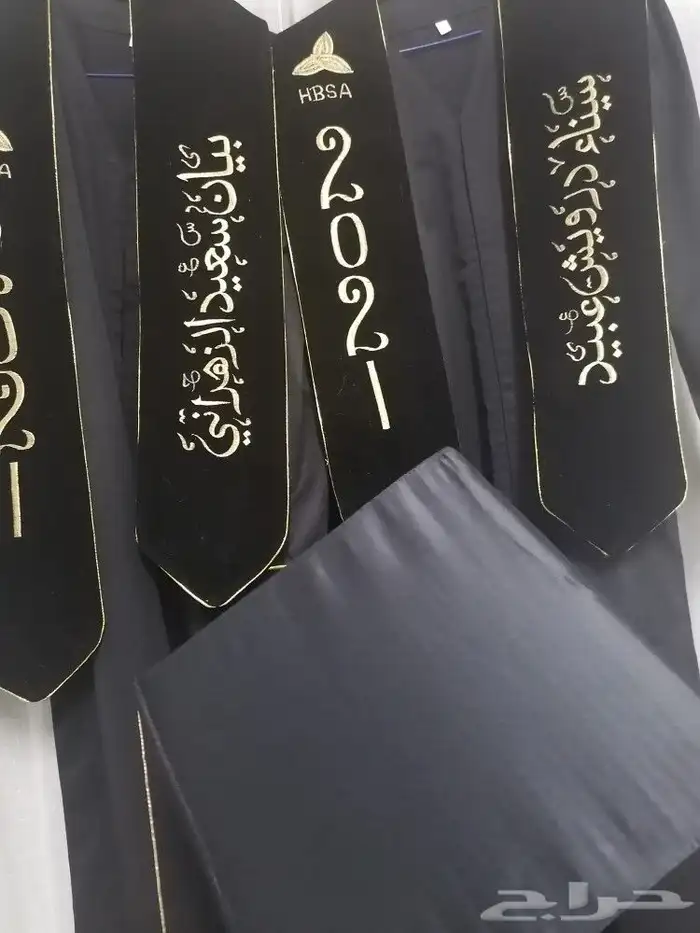 HBSA
2021
بيان سعيد الزهراني
سيناء درويش عبيد
A
حراج